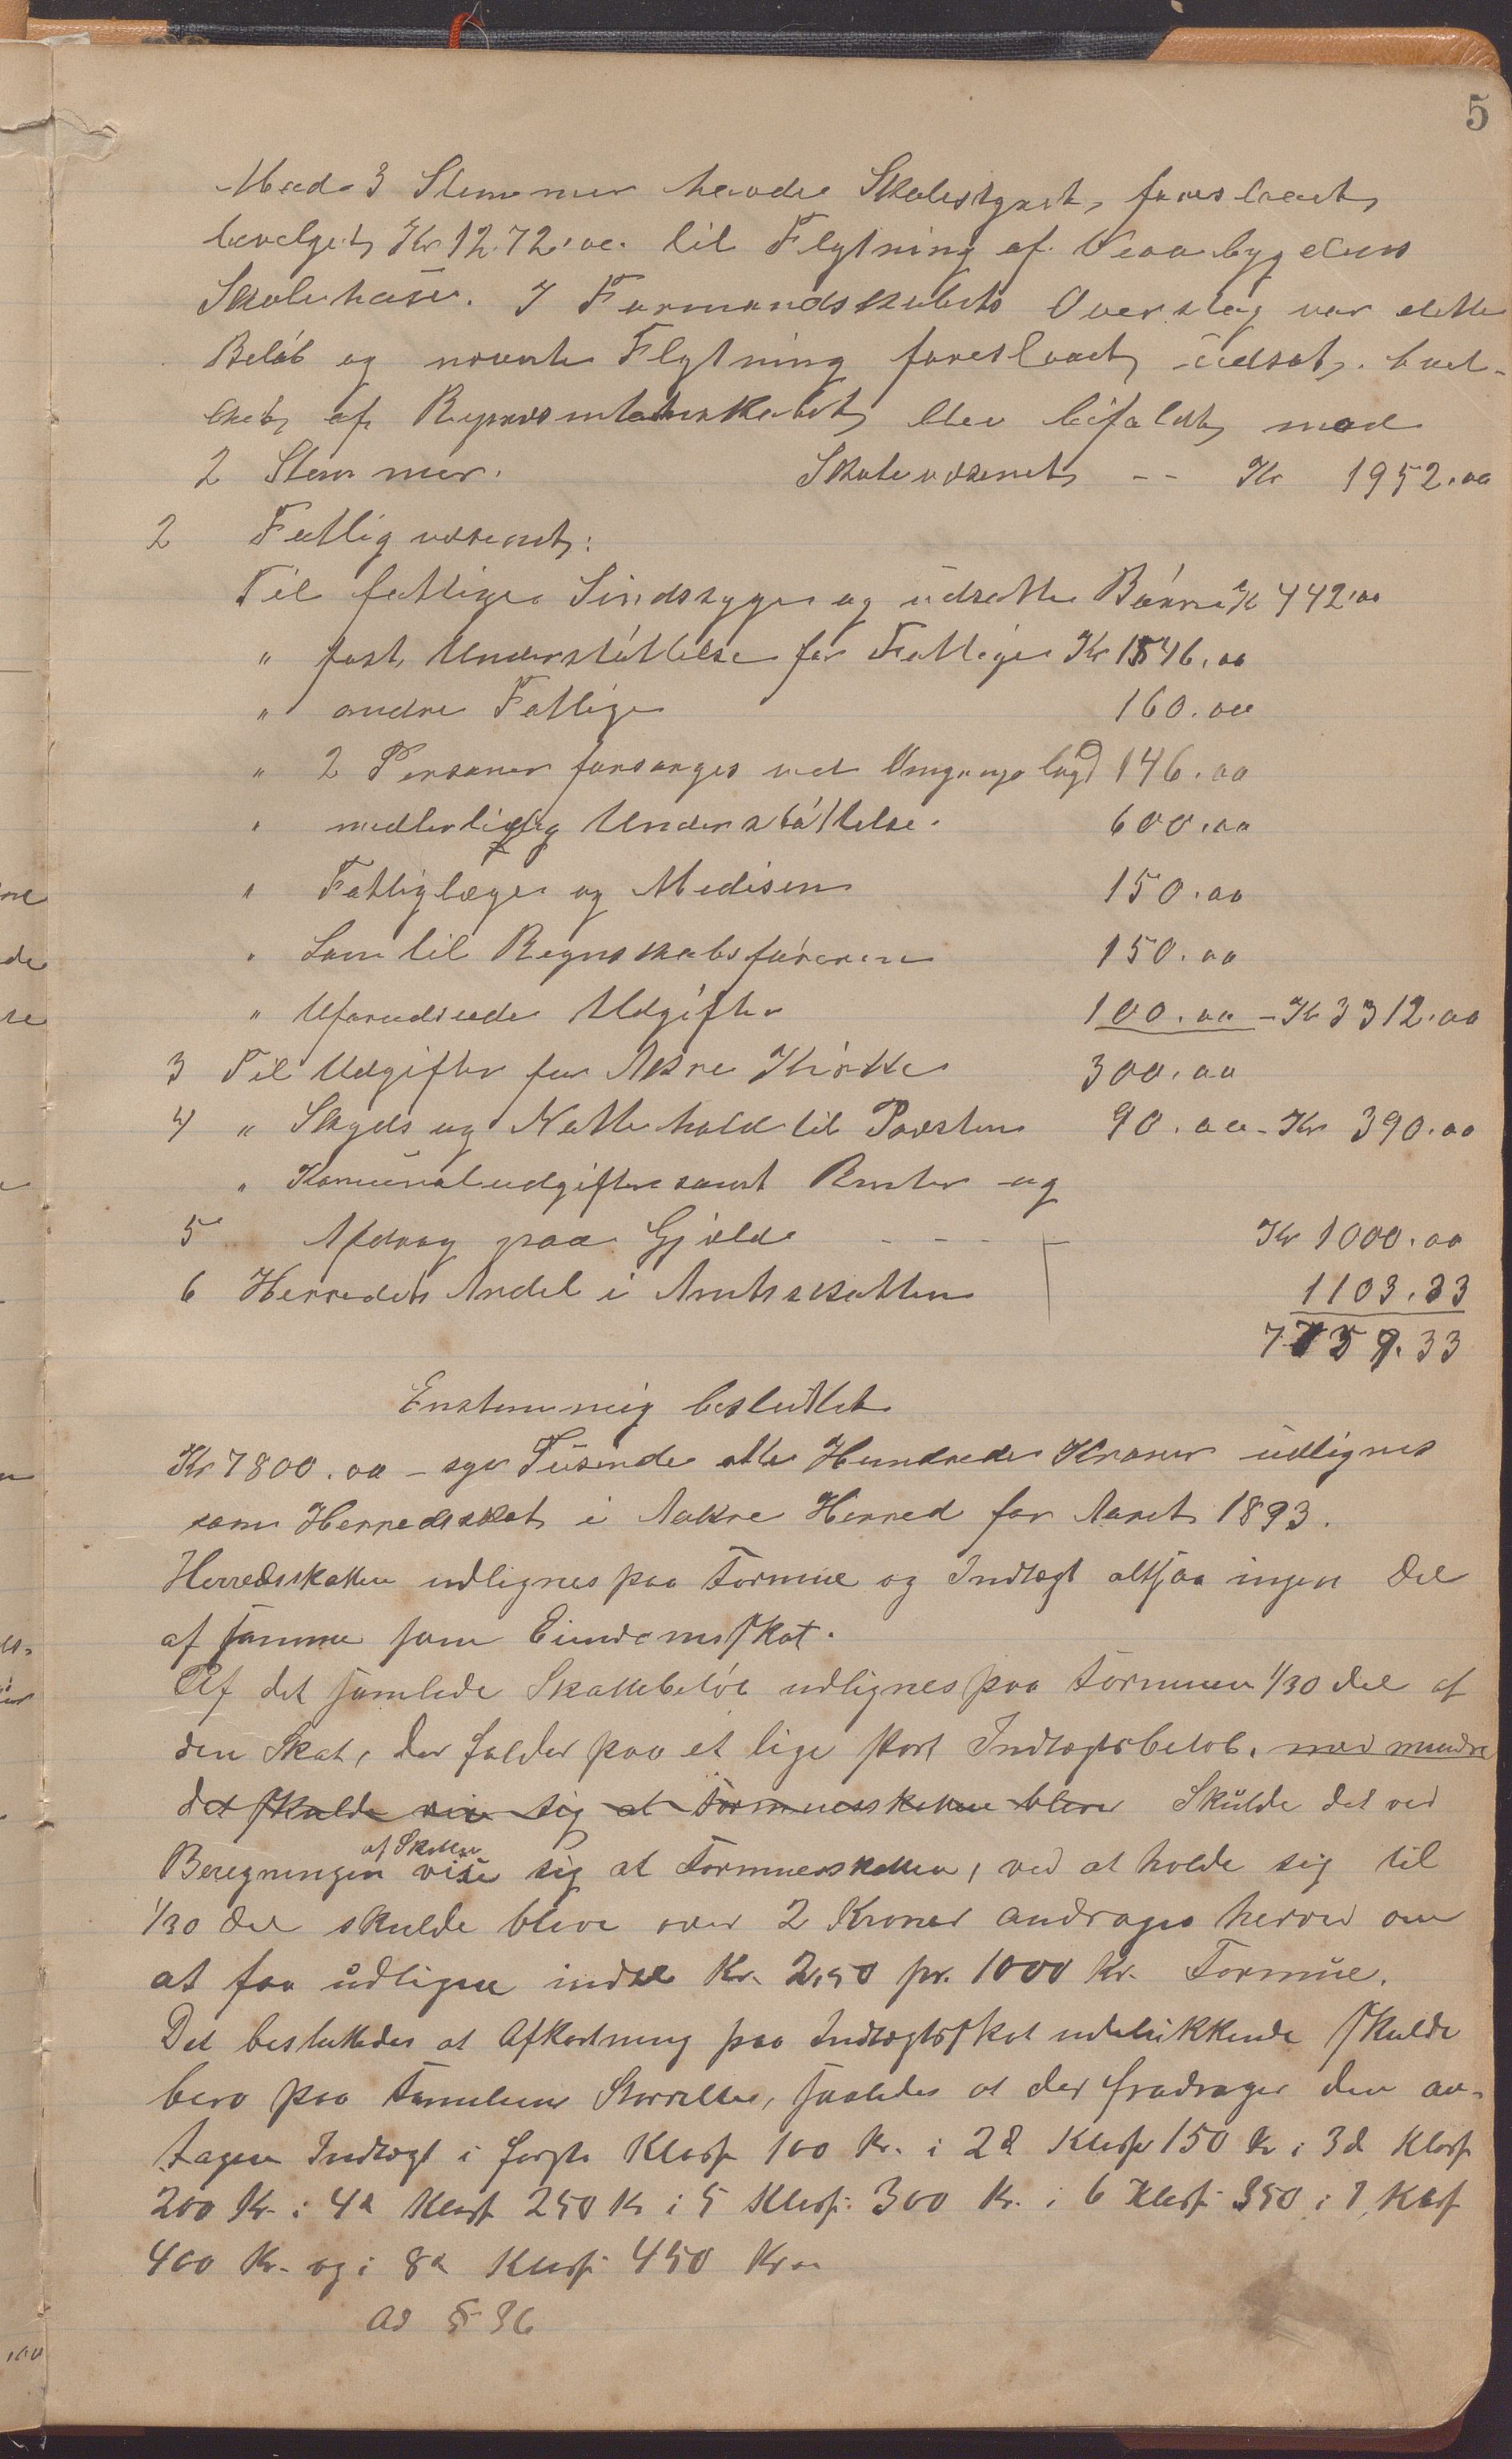 5
Med 3 Stemmer havde Skolestyret, foreslaaet,
bevelget, Kr 1272.oo. til Flytning af Veabygdens
Skolehuse. I Formandskabets Overslag var dette
Beløb og nævnte Flytning foreslaaet, udsat,
af Repræsentantskabet, blev bifaldt, med
2 Stemmer. Skolevæsenet, -- Kr 1952.oo
2 Fattigvæsenet,:
Til fattige Sindssyge og udsatte Børn K 442.oo
" fast, Understøttelse for Fattige Kr 1546.oo
" andre Fattige 160.oo
" 2 Personer forsørges ved Omgangslægd 146.oo
" midlertidig Understøttelse. 600.oo
" Fattiglæge og Medisin 150.oo
" Løn til Regnskabsføreren 150.oo
" Uforudseede Udgifter 100.oo - Kr 3312.oo
3 Til Udgifter for Akre Kirke 300.oo
4 " Skyds og Nattehold til Presten 90.oo - Kr 390.oo
" Komunaludgifter samt Renter og
5 Afdrag paa Gjæld - - - - Kr 1000.oo
6 Herredets Andel i Amtsskatten 1103.33
7757.33
Enstemmig besluttet
Kr 7800.oo - syv Tusende otte Hundrede Kroner udlignes
som Herredsskat, i Aakre Herred for Aaret, 1893.
Herredsskatten udlignes paa Formue og Indtægt altsaa ingen Del
af samme som Eiendomsskat.
Af det samlede Skattebeløb udlignes paa Formuen 1/30 del af
den Skat, der falder paa et lige stort Indtægtsbeløb, med mindre
det skulde vise sig at Formuesskatten bliver Skulde det ved
Beregningen af Skatten vise sig at Formuesskatten, ved at holde sig til
1/30 del skulde blive over 2 Kroner andrages herved om
at faa udligne indtil Kr. 2,50 pr. 1000 Kr. Formue.
Det besluttedes at Afkortning paa Indtægtsskat udelukkende skulde
bero paa Familiens Størrelse, saaledes at der fradrages den an-
tagne Indtægt i første Klasse 100 Kr. i 2d Klasse 150 Kr i 3d Klasse
200 Kr. i 4d Klasse 250 Kr i 5 Klasse 300 Kr. i 6 Klasse 350 i 7 Klasse
400 Kr. og i 8d Klasse 450 Kr.
Ad § 36